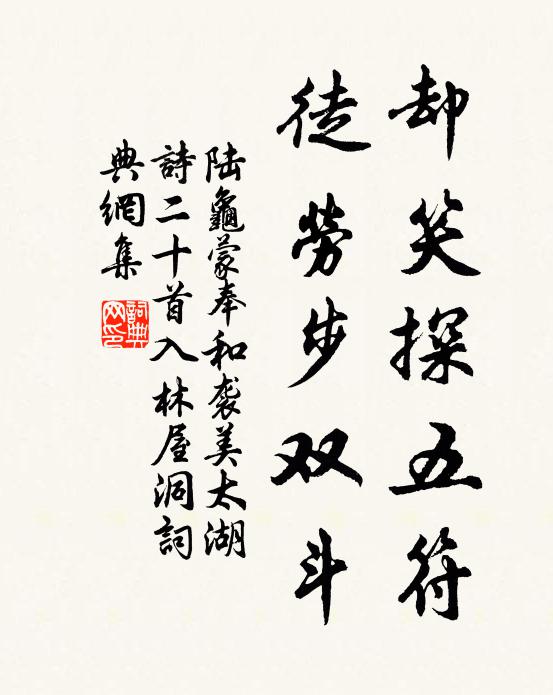 却笑探五符
徒勞步双斗
陆龜蒙奉和袭美太湖
詩二十首入林屋洞詞
典網集
詞典网印